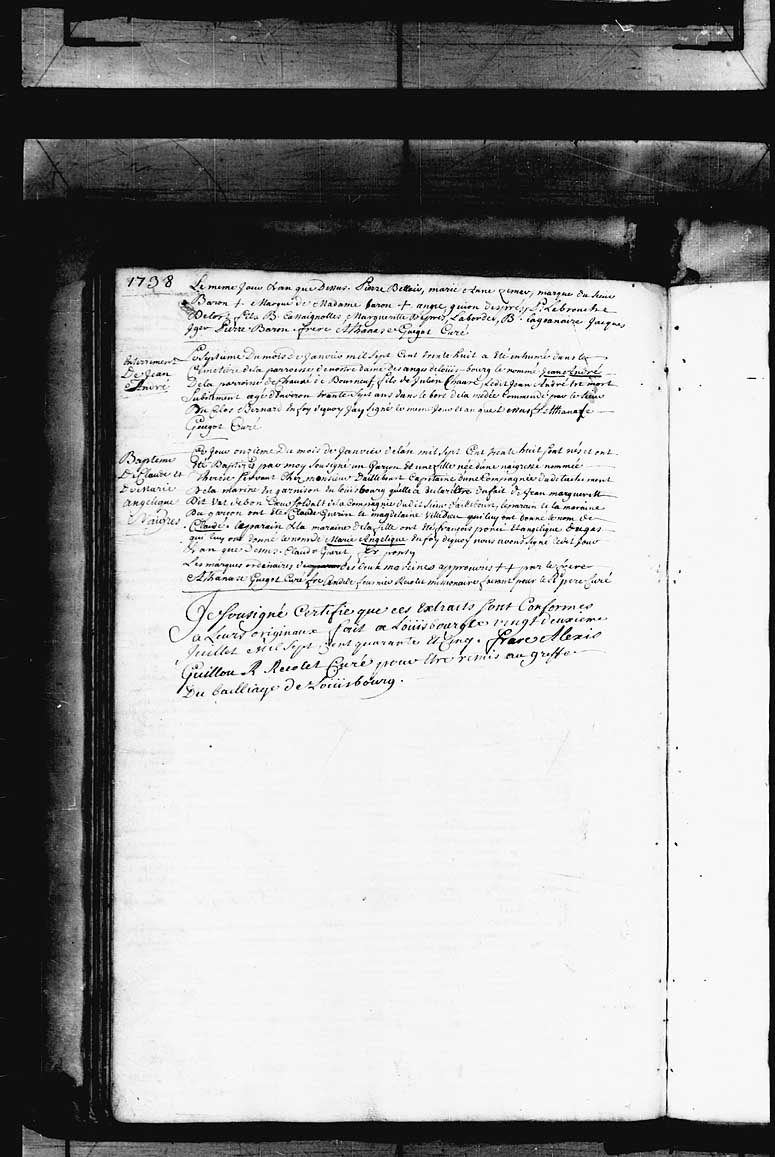 1738
Le meme Jour Lan que Dessus. Pierre Bellair, marie Anne marque du Sieur
Baron + Marque de Madame Baron + ange guion Despres, P. Lebrouche
Delort fils B. Cassaignolles Margueritte Despres, Laborde, B. Lagsanaire Jacques
Iger Pierre Baron. frere Athanase Guigot Curé
Enterrement
De Jean
André
Le Septieme Du mois de Janvier mil Sept Cent trente huit a été inhumé dans le
Cimetiere de la parroisse de nostre dame des anges de Louisbourg le nommé Jean André
De la parroisse de Chauvé de Bourneuf fils de Julien Chauvé, Ledit Jean André est mort
Subitement agé d'Environ trente Sept ans dans le bord de la Commendé par le Sieur
Du Clos Bernard En foy dequoy Jay Signé le meme Jour et an que dessus f. Athanase
Guigot Curé
Bapteme
De Claude et
De Marie
Angelique
Naigres
Ce Jour onzieme Du mois de Janvier de lan mil Sept Cent trente huit Sont nés et ont
été Baptizés par moy Soussigné un Garçon et une fille née d'une naigresse nommée
Therese Servant Chez monsieur Dailleboust Capitaine dune Compagnie du detachement
De la Marine En garnison du Louisbourg quelle a declaré Etre du fait de Jean margueritt
Dit Vat de bon Coeur Soldat de la Compagnie dudit Sieur Dailleboust, le parain et la maraine
Du garçon ont été Claude Guerin et magdelaine Villedieu qui luy ont donné le nom de
Claude. Le parain et la maraine de la fille ont été françois poncé et angelique Dugas
qui luy ont donné le nom de Marie Angelique En foy dequoy nous avons Signé ledit Jour
Et an que Dessus. Claude Guerit, fr ponssy
Les marques ordinaires des deux mareines approuvés + + par le frere
Athanase Guigot Curé fre Candide fournier Recolet missionaire faisant pour le Rd pere Curé
Je Sousigné Certifie que ces Extraits Sont Conformes
a Leurs originaux fait a Louisbourg le vingt deuxieme
Juillet Mil Sept Cent quarante et Cinq. frere Alexis
Guillou R Recolet Curé pour être remis au greffe
Du bailliage de Louisbourg.